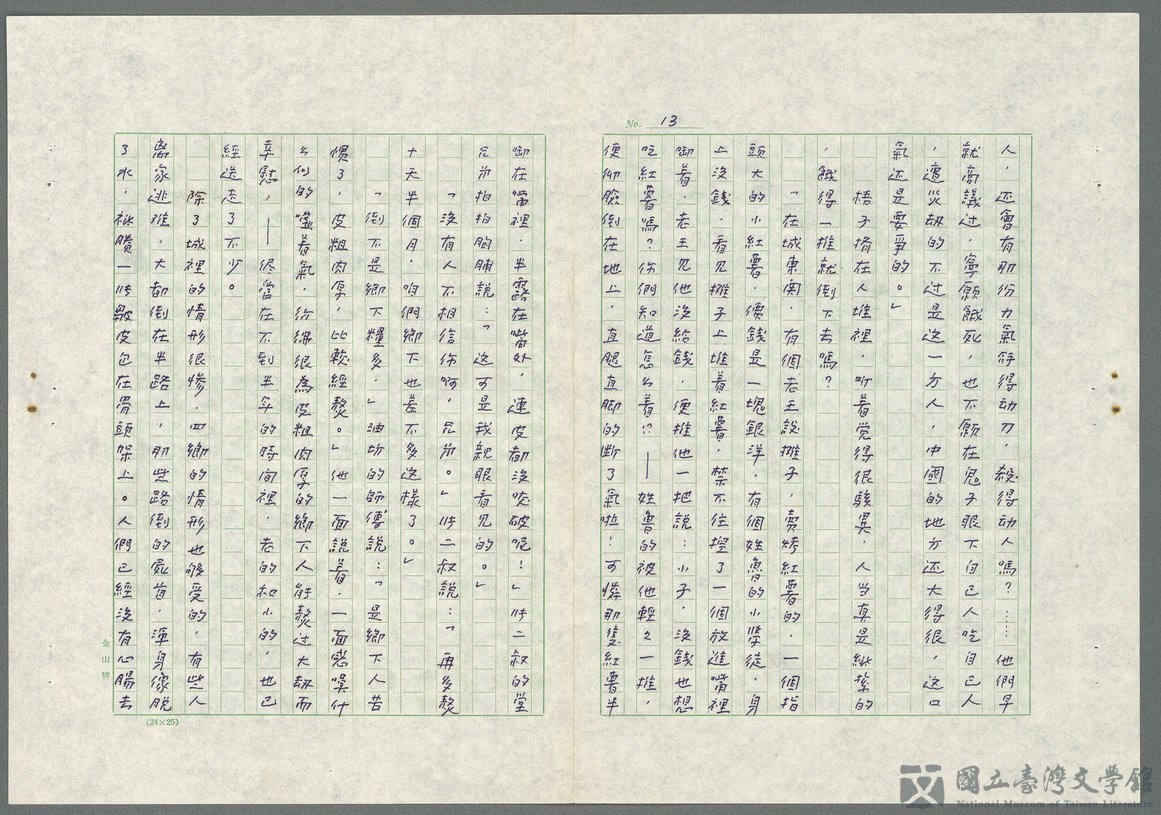 No. 13
人，还會有那份力氣符得动刀，殺得动人嗎？……他們早
就商議过，寧願餓死，也不願在鬼子眼下自己人吃自己人
，遭災劫的不过是这一方人，中國的地方还大得很，这口
氣还是要爭的。」
梧子擠在人堆裡，听着觉得很駭異，人当真是紙紮的
，餓得一推就倒下去嗎？
「在城東関，有個老王設攤子，賣烤紅薯的，一個指
頭大的小紅薯，價錢是一塊銀洋，有個姓魯的小學徒，身
上沒錢，看見攤子上堆着紅薯，禁不住揑了一個放進嘴裡
啣着，老王見他沒給錢，便推他一把說：小子，沒錢也想
吃紅薯嗎？你們知道怎么着？——姓魯的被他輕々一推，
便仰臉倒在地上，直腿直脚的断了氣啦！可憐那隻紅薯半
啣在嘴裡，半露在嘴外，連皮都沒咬破呢！」时二叔的堂
兄弟拍拍胸脯說：「这可是我親眼看見的。」
「沒有人不相信你啊，兄弟。」时二叔說：「再多熬
十天半個月，咱們鄉下也差不多这樣了。」
「倒不是鄉下糧多，」油坊的師傅說：「是鄉下人苦
慣了，皮粗肉厚，比較經熬。」他一面說着，一面感嘆什
么似的噓着氣，彷彿很為皮粗肉厚的鄉下人能熬过大劫而
幸慰，——儘管在不到半年的時间裡，老的和小的，也已
經送走了不少。
除了城裡的情形很慘，四鄉的情形也够受的，有些人
离家逃难，大都倒在半路上，那些路倒的屍首，渾身像脱
了水，祇賸一张皺皮包在骨頭架上。人們已經沒有心腸去
金山牌
(24×25)
國立臺灣文學館
National Museum of Taiwan Literature